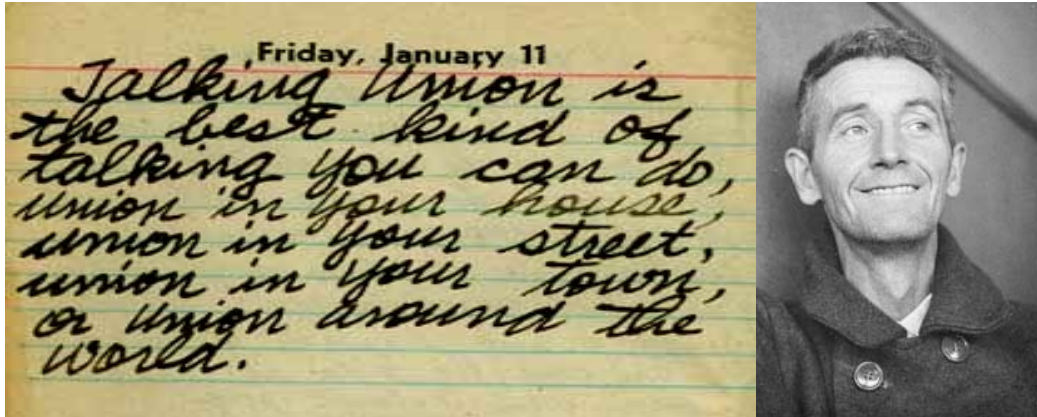 Friday, January 11
Talking Union is
the best kind of
talking you can do,
union in your house,
union in your street,
union in your town,
or union around the
world.